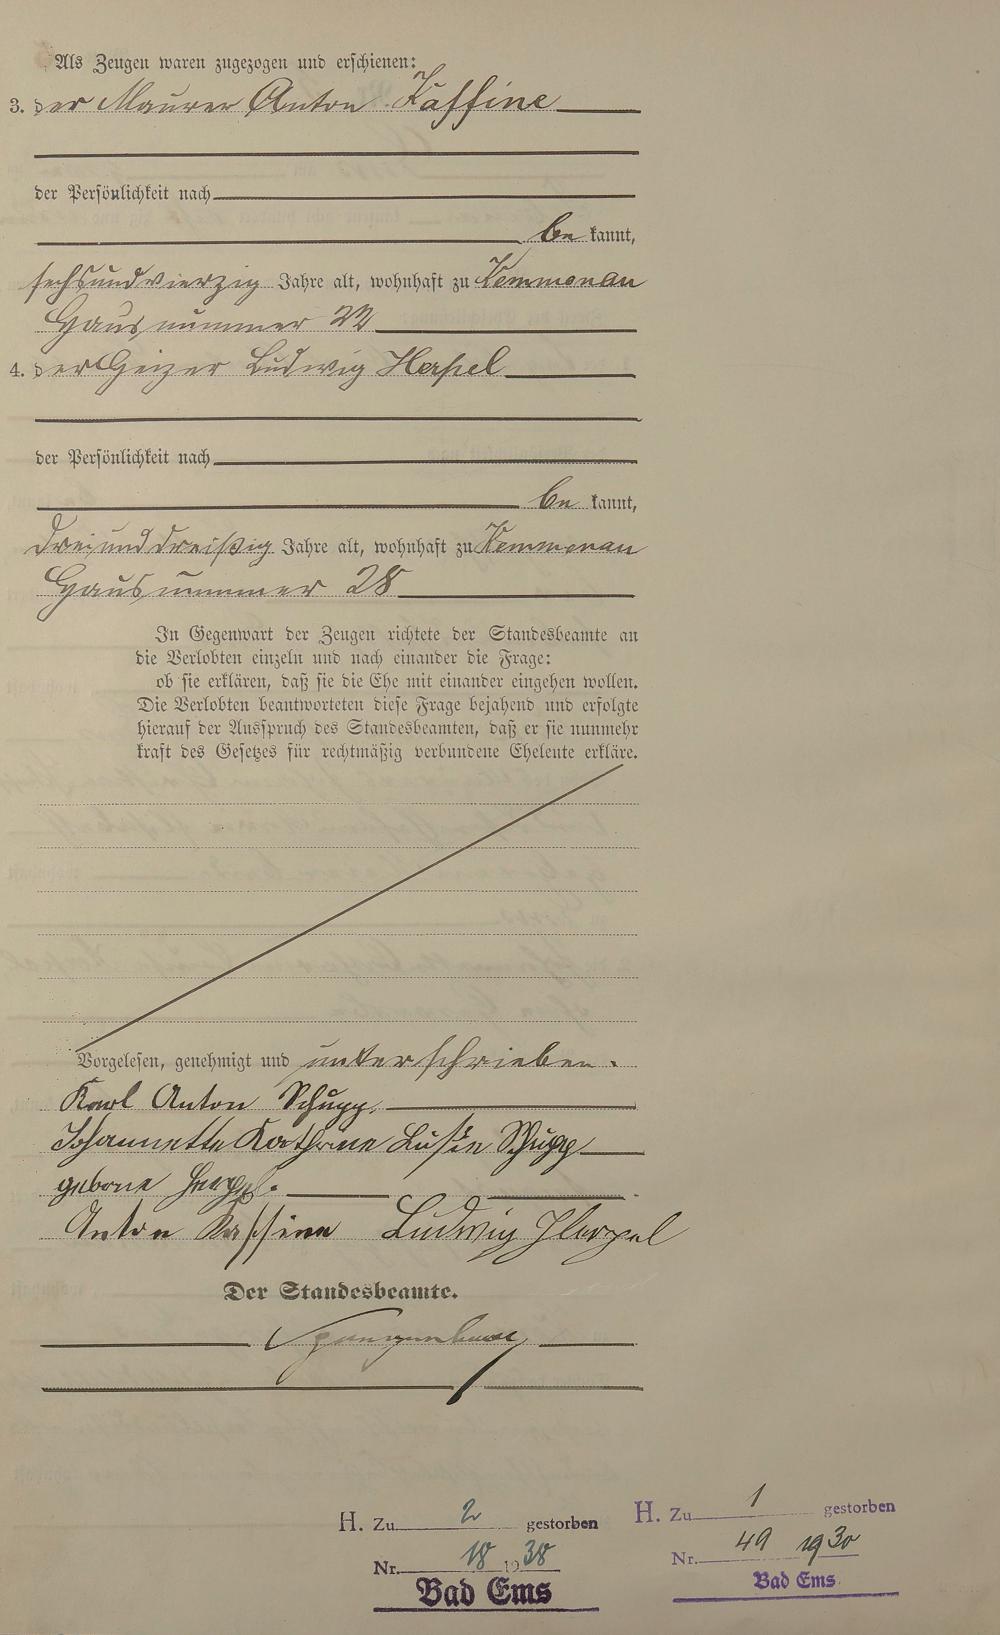 Als Zeugen waren zugezogen und erschienen:
3. der Maurer Anton Kaffine
der Persönlichkeit nach
be kannt,
sechsundvierzig Jahre alt, wohnhaft zu Kemmenau
Hausnummer 22
4. der Heizer Ludwig Herpel
der Persönlichkeit nach
be kannt,
dreiunddreißig Jahre alt, wohnhaft zu Kemmenau
Hausnummer 28
In Gegenwart der Zeugen richtete der Standesbeamte an
die Verlobten einzeln und nach einander die Frage:
ob sie erklären, daß sie die Ehe mit einander eingehen wollen.
Die Verlobten beantworteten diese Frage bejahend und erfolgte
hierauf der Ausspruch des Standesbeamten, daß er sie nunmehr
kraft des Gesetzes für rechtmäßig verbundene Eheleute erkläre.
Vorgelesen, genehmigt und unterschrieben.
Karl Anton Schupp.
Johannette Kathrine Luise Schupp
geborne Herpel.
Anton Kaffine Ludwig Herpel
Der Standesbeamte.
H. Zu 2 gestorben
Nr. 18 1938
Bad Ems
H. Zu 1 gestorben
Nr. 49 1930
Bad Ems